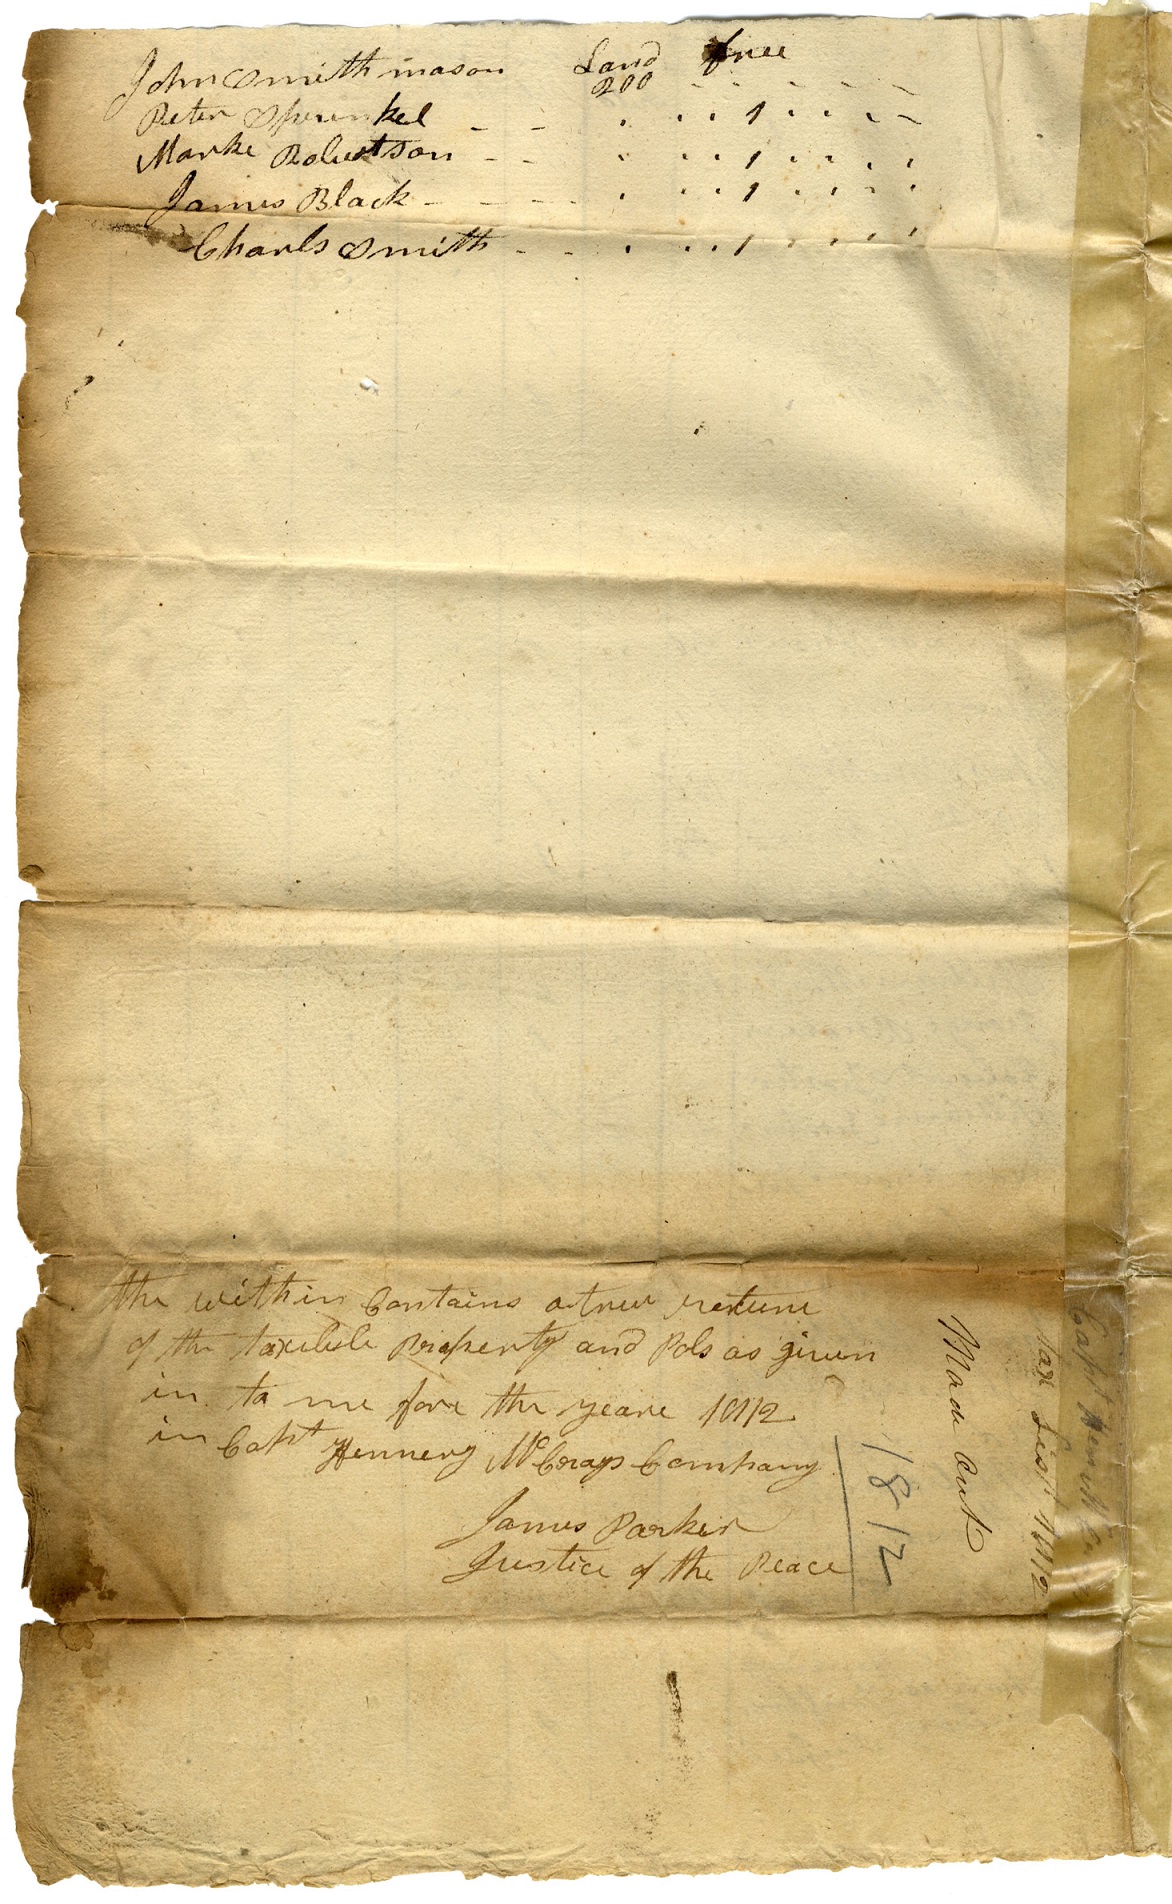 Land free
John Smith mason 200
Peter Sprinkel - - . . . 1 . . . .
Marke Robertson - - . . . 1 . . . .
James Black - - - . . . 1 . . . .
Charls Smith - - . . . 1 . . . .
the within Contains a true return
of the taxebele Property and Pols as given
in to me fore the yeare 1812
in Capt Hennery McCrays Company
James Parker
Justice of the Peace
1812
Made out
tax List 1812
Capt